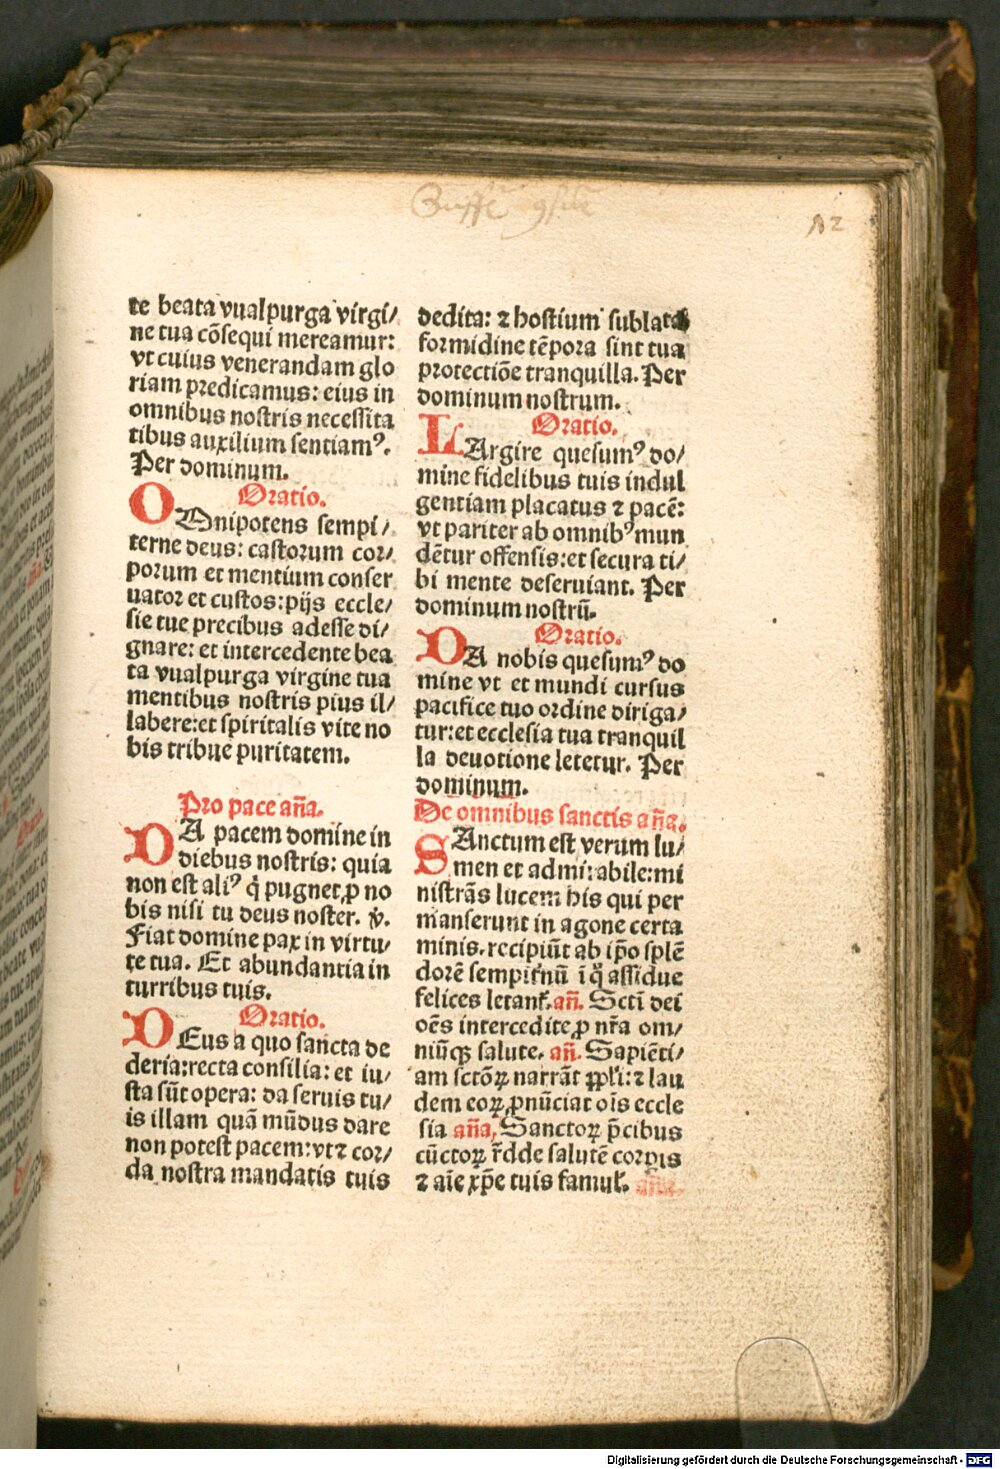 te beata vualpurga virgi/
ne tua cōsequi mereamur:
vt cuius venerandam glo
riam predicamus: eius in
omnibus nostris necessita
tibus auxilium sentiamꝰ.
Per dominum.
Oratio.
OMnipotens sempi/
terne deus: castorum cor/
porum et mentium conser
uator et custos: pijs eccle/
sie tue precibus adesse di/
gnare: et intercedente bea
ta vualpurga virgine tua
mentibus nostris pius il/
labere: et spiritalis vite no
bis tribue puritatem.
Pro pace año.
DA pacem domine in
diebus nostris: quia
non est aliꝰ q̇ pugnet ꝓ no
bis nisi tu deus noster. v̇.
Fiat domine pax in virtu/
te tua. Et abundantia in
turribus tuis.
Oratio.
DEus a quo sancta de
deria: recta consilia: et iu/
sta sūt opera: da seruis tu/
is illam quā mūdus dare
non potest pacem: vt ⁊ cor/
da nostra mandatis tuis
dedita: ⁊ hostium sublata
formidine tēpora sint tua
protectiōe tranquilla. Per
dominum nostrum.
Oratio.
LArgire quesumꝰ do/
mine fidelibus tuis indul
gentiam placatus ⁊ pacē:
vt pariter ab omnibꝰ mun
dētur offensis: et secura ti/
bi mente deseruiant. Per
dominum nostrū.
Oratio.
DA nobis quesumꝰ do
mine vt et mundi cursus
pacifice tuo ordine diriga/
tur: et ecclesia tua tranquil
la deuotione letetur. Per
dominum.
De omnibus sanctis aña.
SAnctum est verum lu/
men et admirabile: mi
nistrās lucem his qui per
manserunt in agone certa
minis. recipiūt ab ip̄o splē
dorē sempit̓nū ī q̊ assidue
felices letant᷑. añ. Scti̅ dei
oēs intercedite ꝓ nr̄a om/
niūqꝫ salute. añ. Sapiēti/
am sctōꝝ narrāt ꝓpl̓i: ⁊ lau
dem eoꝝ ꝓnūciat ois̄ eccle
sia aña, Sanctoꝝ p̄cibus
cūctoꝝ r̄dde salutē corpis
⁊ aīe xp̄e tuis famul̓. aña.
82
Digitalisierung gefördert durch die Deutsche Forschungsgemeinschaft - DFG